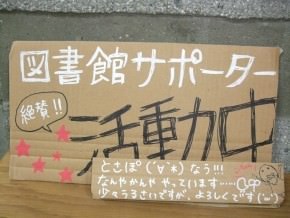 図書館サポーター
絶賛!!
活動中
としょぽ(´∀`*)なう!!!
なんやかんややっています……
少々うるさいですが、よろしくです('ω')